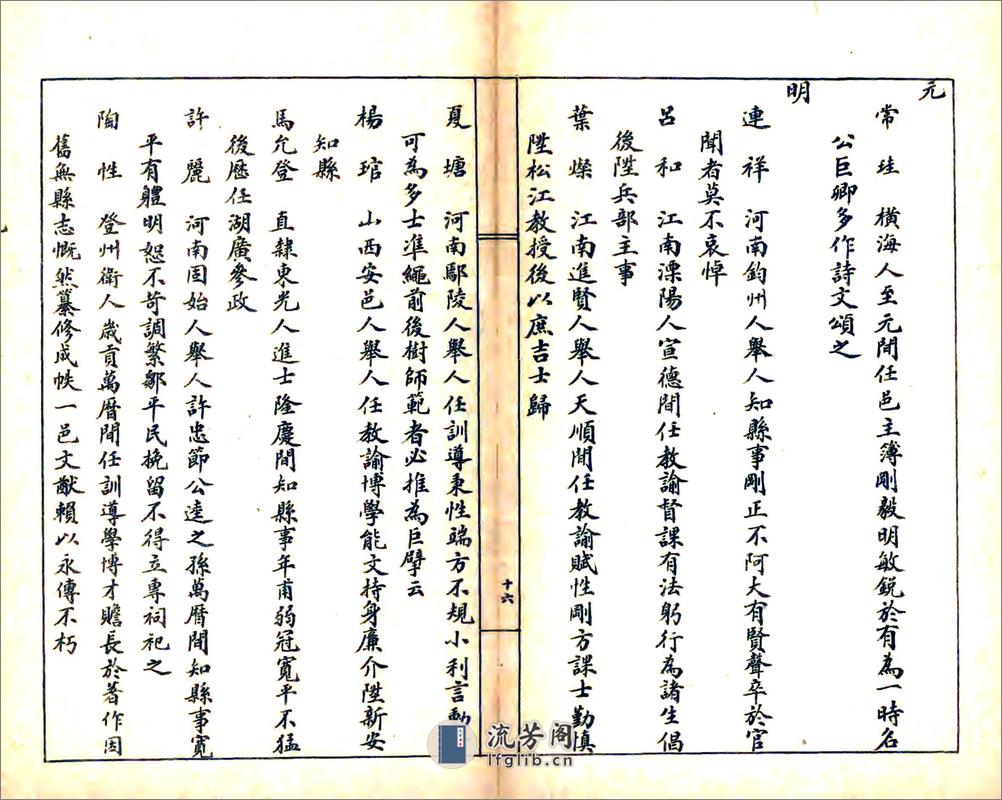 元
常　珪　橫海人至元間任邑主簿剛毅明敏銳於有為一時名
公巨卿多作詩文頌之
明
連　祥　河南鈞州人舉人知縣事剛正不阿大有賢聲卒於官
聞者莫不哀悼
呂　和　江南溧陽人宣德間任教諭督課有法躬行為諸生倡
後陞兵部主事
葉　燦　江南進賢人舉人天順間任教諭賦性剛方課士勤慎
陞松江教授後以庶吉士歸
十六
夏　塘　河南鄢陵人舉人任訓導秉性端方不規小利言動
可為多士準繩前後樹師範者必推為巨擘云
楊　琯　山西安邑人舉人任教諭博學能文持身廉介陞新安
知縣
馬允登　直隸東光人進士隆慶間知縣事年甫弱冠寬平不猛
後歷任湖廣參政
許　麗　河南固始人舉人許忠節公逵之孫萬曆間知縣事寬
平有軆明恕不苛調繁鄒平民挽留不得立專祠祀之
陶　性　登州衛人歲貢萬曆間任訓導學博才贍長於著作因
舊無縣志慨然纂修成帙一邑文獻賴以永傳不朽
流芳阁
lfglib.cn